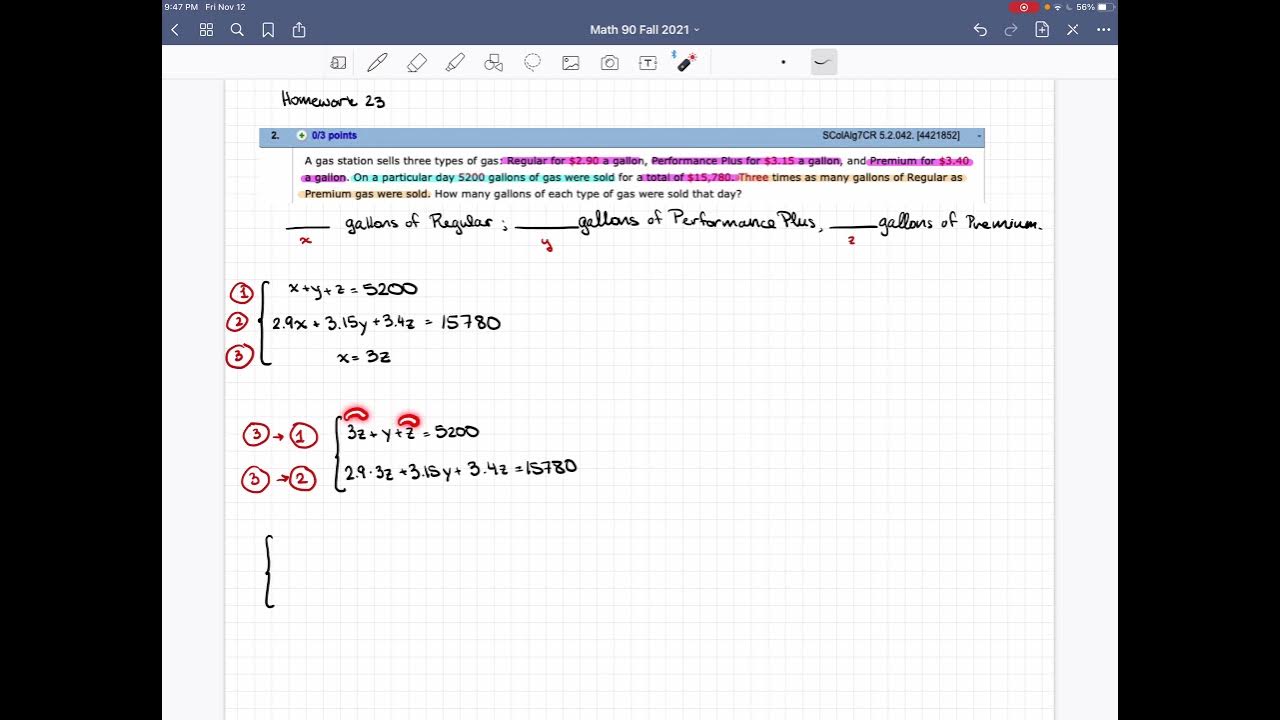 9:47 PM Fri Nov 12
56%
Math 90 Fall 2021
Homework 23
2. 0/3 points SColAlg7CR 5.2.042. [4421852]
A gas station sells three types of gas: Regular for $2.90 a gallon, Performance Plus for $3.15 a gallon, and Premium for $3.40
a gallon. On a particular day 5200 gallons of gas were sold for a total of $15,780. Three times as many gallons of Regular as
Premium gas were sold. How many gallons of each type of gas were sold that day?
____ gallons of Regular; ____ gallons of Performance Plus, ____ gallons of Premium.
x y z
1 x+y+z=5200
2 2.9x+3.15y+3.4z=15780
3 x=3z
3→1 3z+y+z=5200
3→2 2.9·3z+3.15y+3.4z=15780